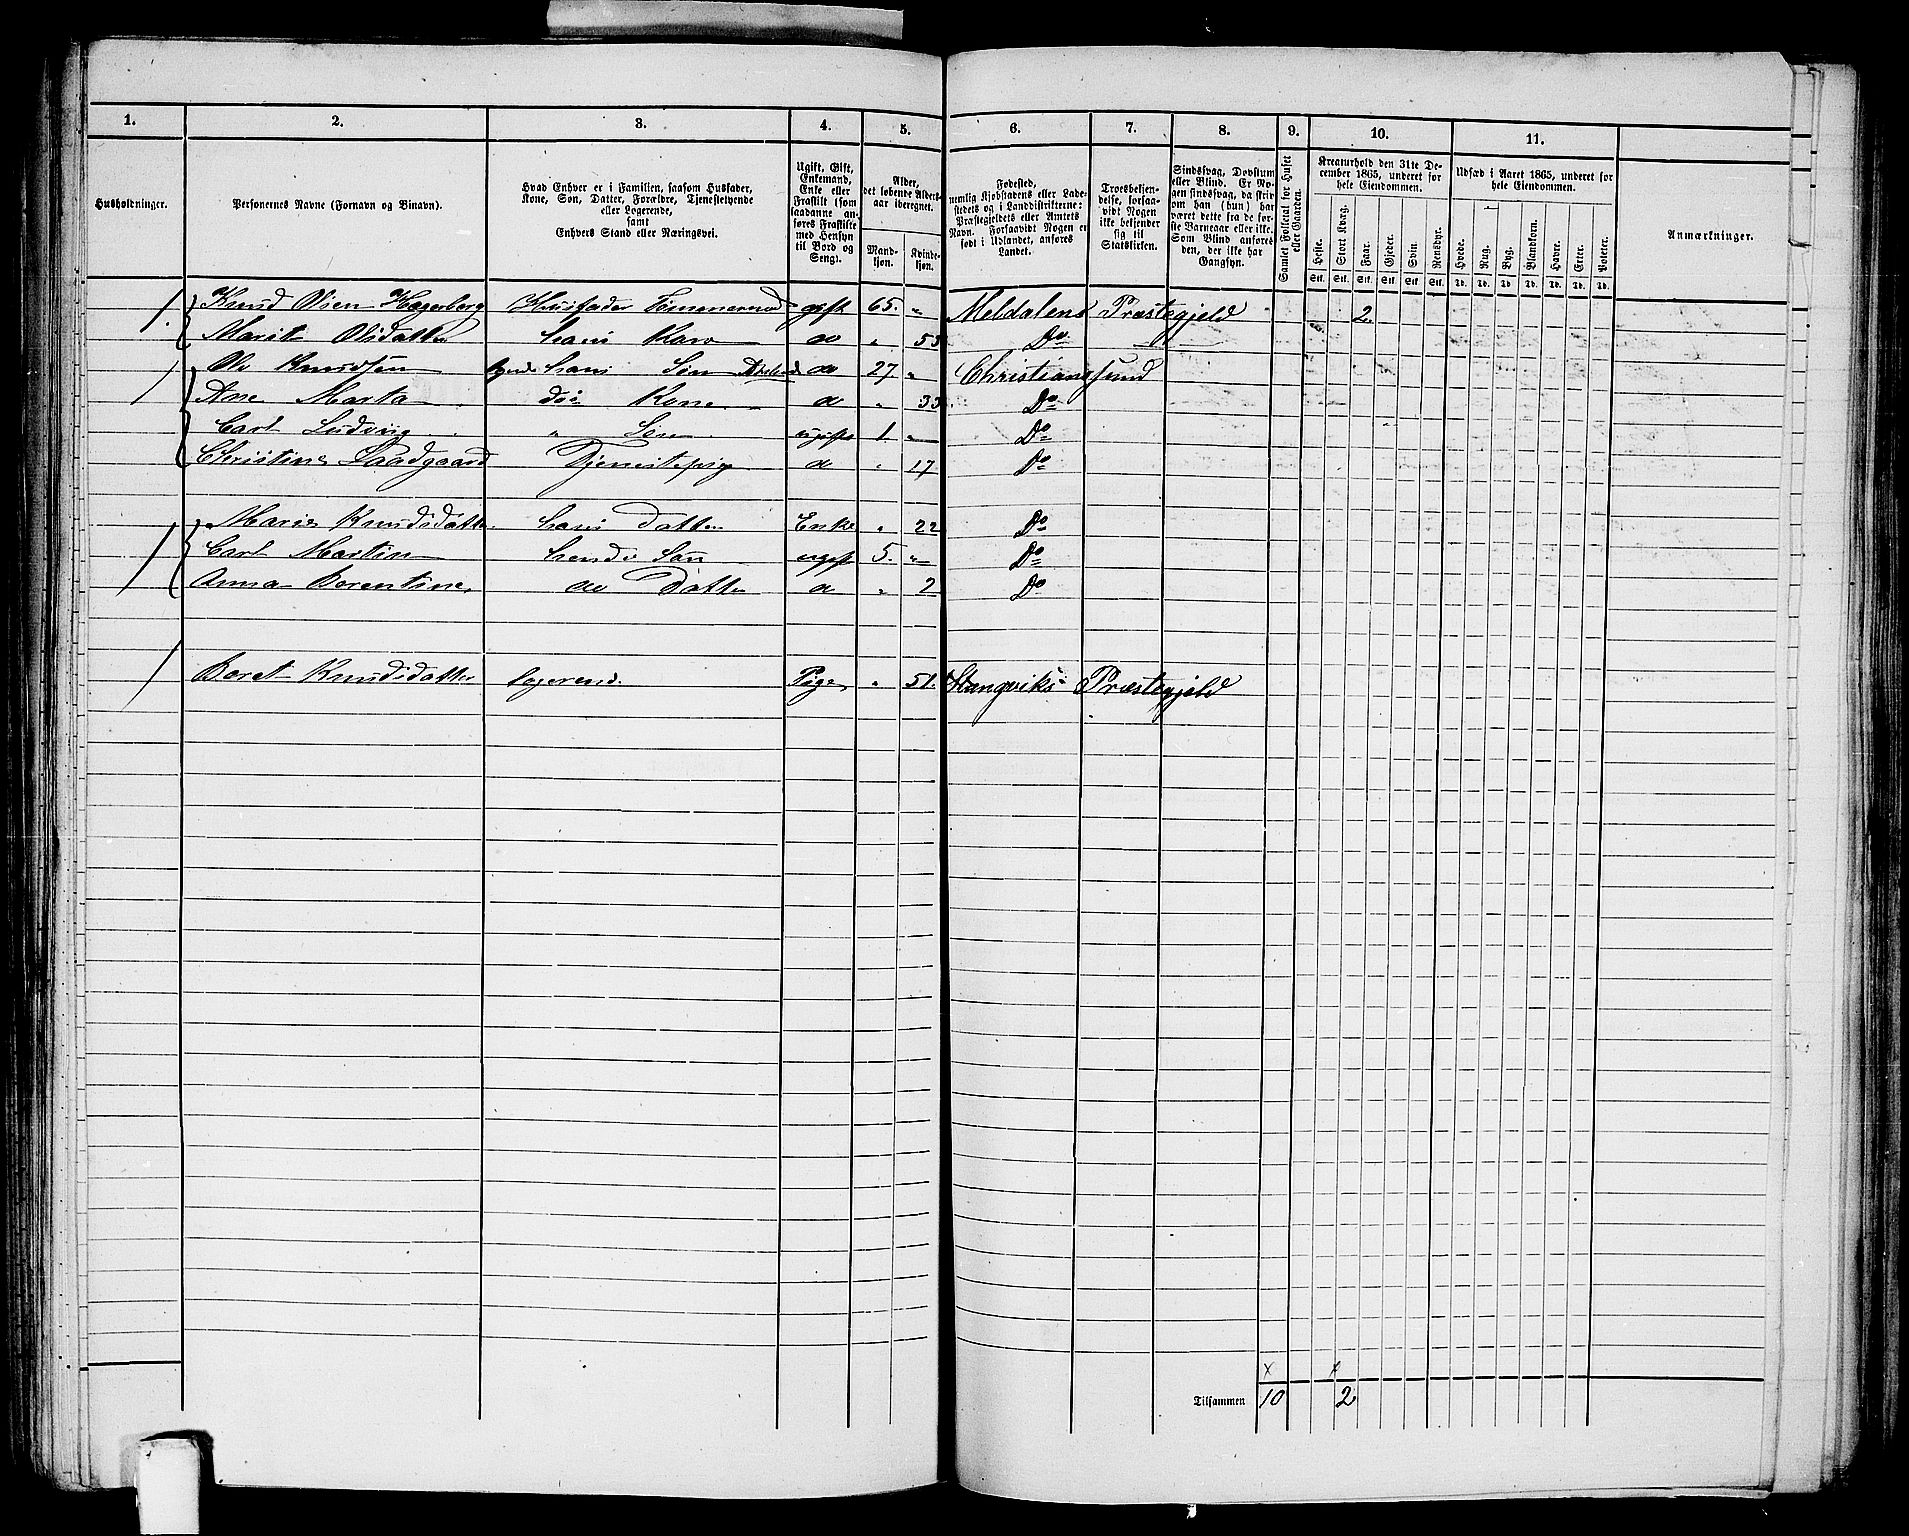 1. 2. 3. 4. 5. 6. 7. 8. 9. 10. 11.
Husholdninger.
Personernes Navne (Fornavn og Binavn).
Hvad Enhver er i Familien, saasom Husfader,
Kone, Søn, Datter, Forældre, Tjenestetyende
eller Logerende,
samt
Enhvers Stand eller Næringsvei.
Ugift, Gift,
Enkemand,
Enke eller
Fraskilt (som
saadanne an-
føres Fraskilte
med Hensyn
til Bord og
Seng).
Alder,
det løbende Alders-
aar iberegnet.
Mand-
kjøn.
Kvinde-
kjøn.
Fødested,
nemlig Kjøbstadens eller Lade-
stedets og i Landdistrikterne:
Præstegjeldets eller Amtets
Navn. Forsaavidt Nogen er
født i Udlandet, anføres
Landet.
Troesbekjen-
delse, forsaa-
vidt Nogen
ikke bekjender
sig til
Statskirken.
Sindssvag, Døvstum
eller Blind. Er No-
gen sindssvag, da skriv
om han (hun) har
været dette fra de før-
ste Barneaar eller ikke.
Som Blind anføres
den, der ikke har
Gangsyn.
Samlet Folketal for Huset
eller Gaarden.
Kreaturhold den 31te De-
cember 1865, underet for
hele Eiendommen.
Heste. Stort Kvæg. Faar. Gjeder. Svin. Rensdyr.
Stk. Stk. Stk. Stk. Stk. Stk.
Udsæd i Aaret 1865, underet for
hele Eiendommen.
Hvede. Rug. Byg. Blandkorn. Havre. Erter. Poteter.
Td. Td. Td. Td. Td. Td. Td.
Anmærkninger.
1. Knud Olsen Hegerberg Huusfader Tømmermd gift 65. " Meldalens Præstegjeld 2
Marit Olsdatter hans Kone do " 55 Do
1 Ole Knudsen hans Søn do 27 " Christianssund
Ane Marta ds Kone do " 33 Do
Carl Ludvig " Søn ugift 1 " Do
Christine Saadgaard Tjenestepige do " 17 Do
1 Marie Knudsdatter hans Datter Enke " 22 Do
Carl Martin hendes Søn ugift 5. " Do
Anna Berentine do Datter do " 2 Do
1 Beret Knudsdatter logerende Pige " 51. Stangviks Præstegjeld
x x
Tilsammen 10 2